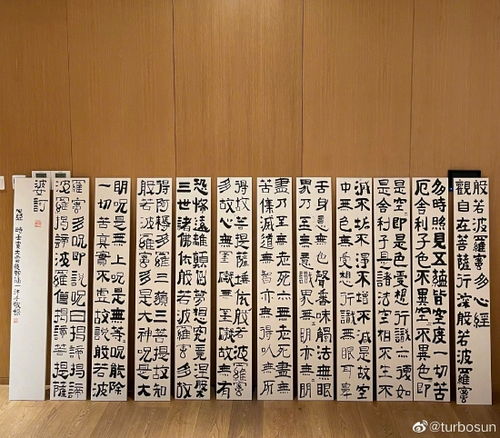 般若波羅蜜多心經
觀自在菩薩行深般若波羅蜜
多時照見五蘊皆空度一切苦
厄舍利子色不異空空不異色色即
是空空即是色受想行識亦復如
是舍利子是諸法空相不生不
滅不垢不淨不增不減是故空
中無色無受想行識無眼耳鼻
舌身意無色聲香味觸法無眼
界乃至無意識界無無明亦無無明
盡乃至無老死亦無老死盡無
苦集滅道無智亦無得以無所
得故菩提薩埵依般若波羅蜜
多故心無罣礙無罣礙故無有
恐怖遠離顛倒夢想究竟涅槃
三世諸佛依般若波羅蜜多故
得阿耨多羅三藐三菩提故知
般若波羅蜜多是大神咒是大
明咒是無上咒是無等等咒能除
一切苦真實不虛故說般若波
羅蜜多咒即說咒曰揭諦揭諦
波羅揭諦波羅僧揭諦菩提薩
婆訶
@turbosun